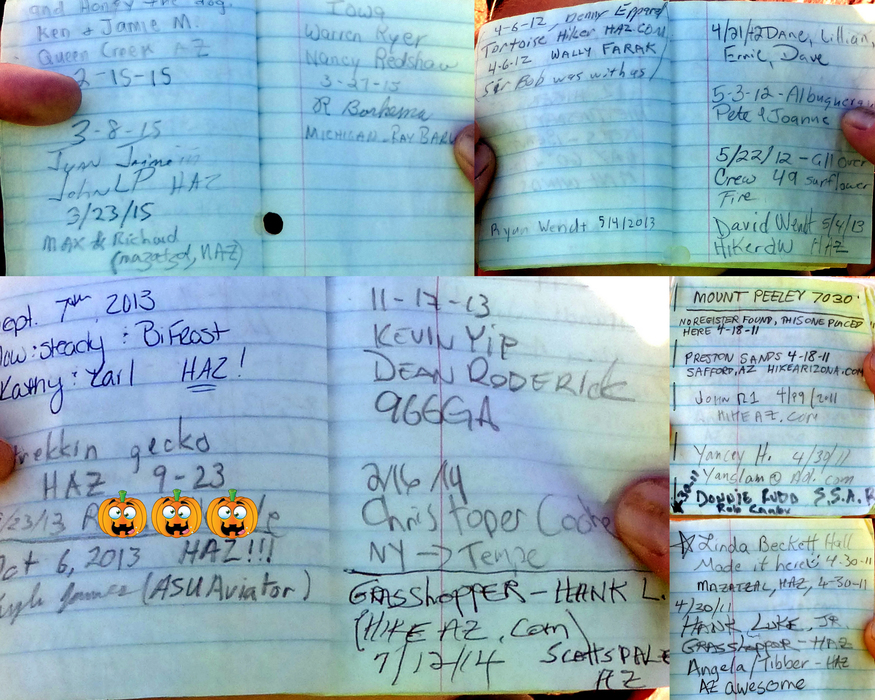 and Honey the dog.
Ken & Jamie M.
Queen Creek AZ
2-15-15
3-8-15
John LP HAZ
3/23/15
MAX & Richard
(mazatzal, HAZ)
Iowa
Warren Kyer
Nancy Redshaw
3-27-15
R Bonkema
MICHIGAN - RAY
4-6-12, Denny
Tortoise Hiker HAZ.COM
4-6-12 WALLY FARAK
Sir Bob was with us
Ryan Wendt 5/4/2013
4/21/12 Dane, Lillian,
Ernie, Dave
5-3-12 - Albuquerque
Pete & Joanne
5/22/12 - Gll over
Crew 49 sunflower
Fire
David Wendt 5/4/13
HikerdW HAZ
ept. 7th 2013
ow : steady : BiFrost
Kathy : Karl HAZ!
trekkin gecko
HAZ 9-23
/23/13 R
Oct 6, 2013 HAZ!!!
Kyle James (ASUAviator)
11-17-13
KEVIN YIP
DEAN RODERICK
966GA
2/16/14
Christoper
NY → Tempe
GRASSHOPPER - HANK L.
(HIKE AZ.Com)
7/12/14 SCOTTSDALE
AZ
MOUNT PEELEY 7030'
NO REGISTER FOUND, THIS ONE PLACED
HERE 4-18-11
PRESTON SANDS 4-18-11
SAFFORD, AZ HIKEARIZONA.COM
John R1 4/19/2011
HIKEAZ.COM
Yancey H. 4/30/11
Yanslam@Aol.com
4-30-11 DONNIE RUDD S.S.A.R
Rob
☆ Linda Beckett Hall
Made it here :) 4-30-11
MAZATZAL, HAZ, 4-30-11
4/30/11
HANK LUKE JR.
GRASSHOPPER - HAZ
Angela/Tibber - HAZ
AZ awesome